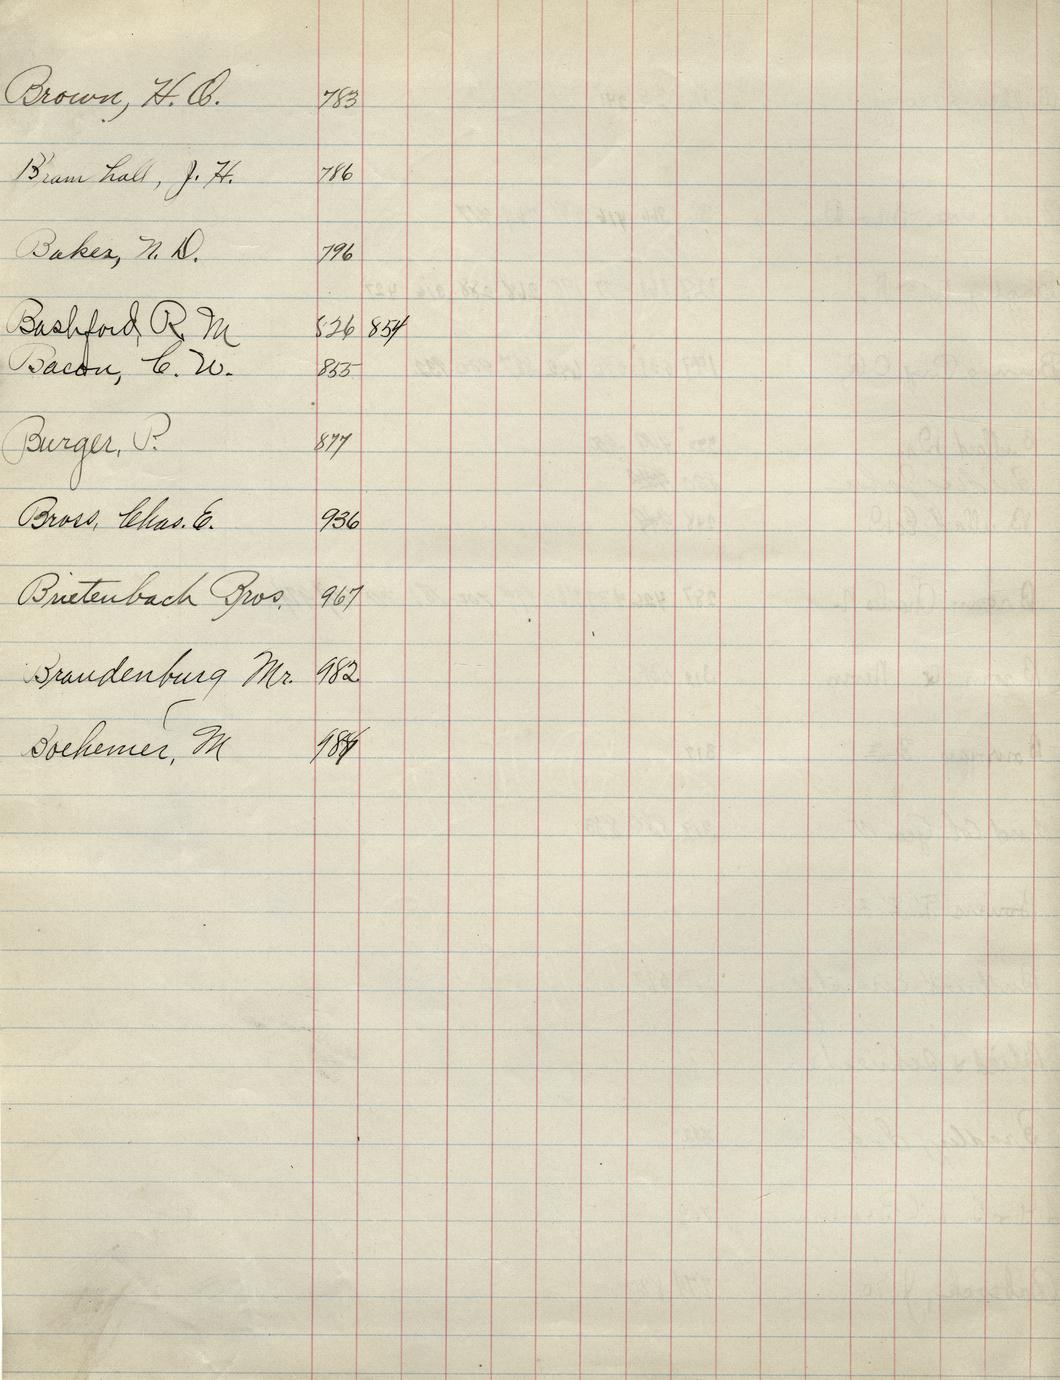 Brown, H. O. 783
Bramhall, J. H. 786
Baker, N. D. 796
Bashford, R. M 826 854
Bacon, C. W. 855
Burger, P. 877
Bross, Chas. E. 936
Brietenbach Bros. 967
Brandenburg Mr. 982
Boehemer, M